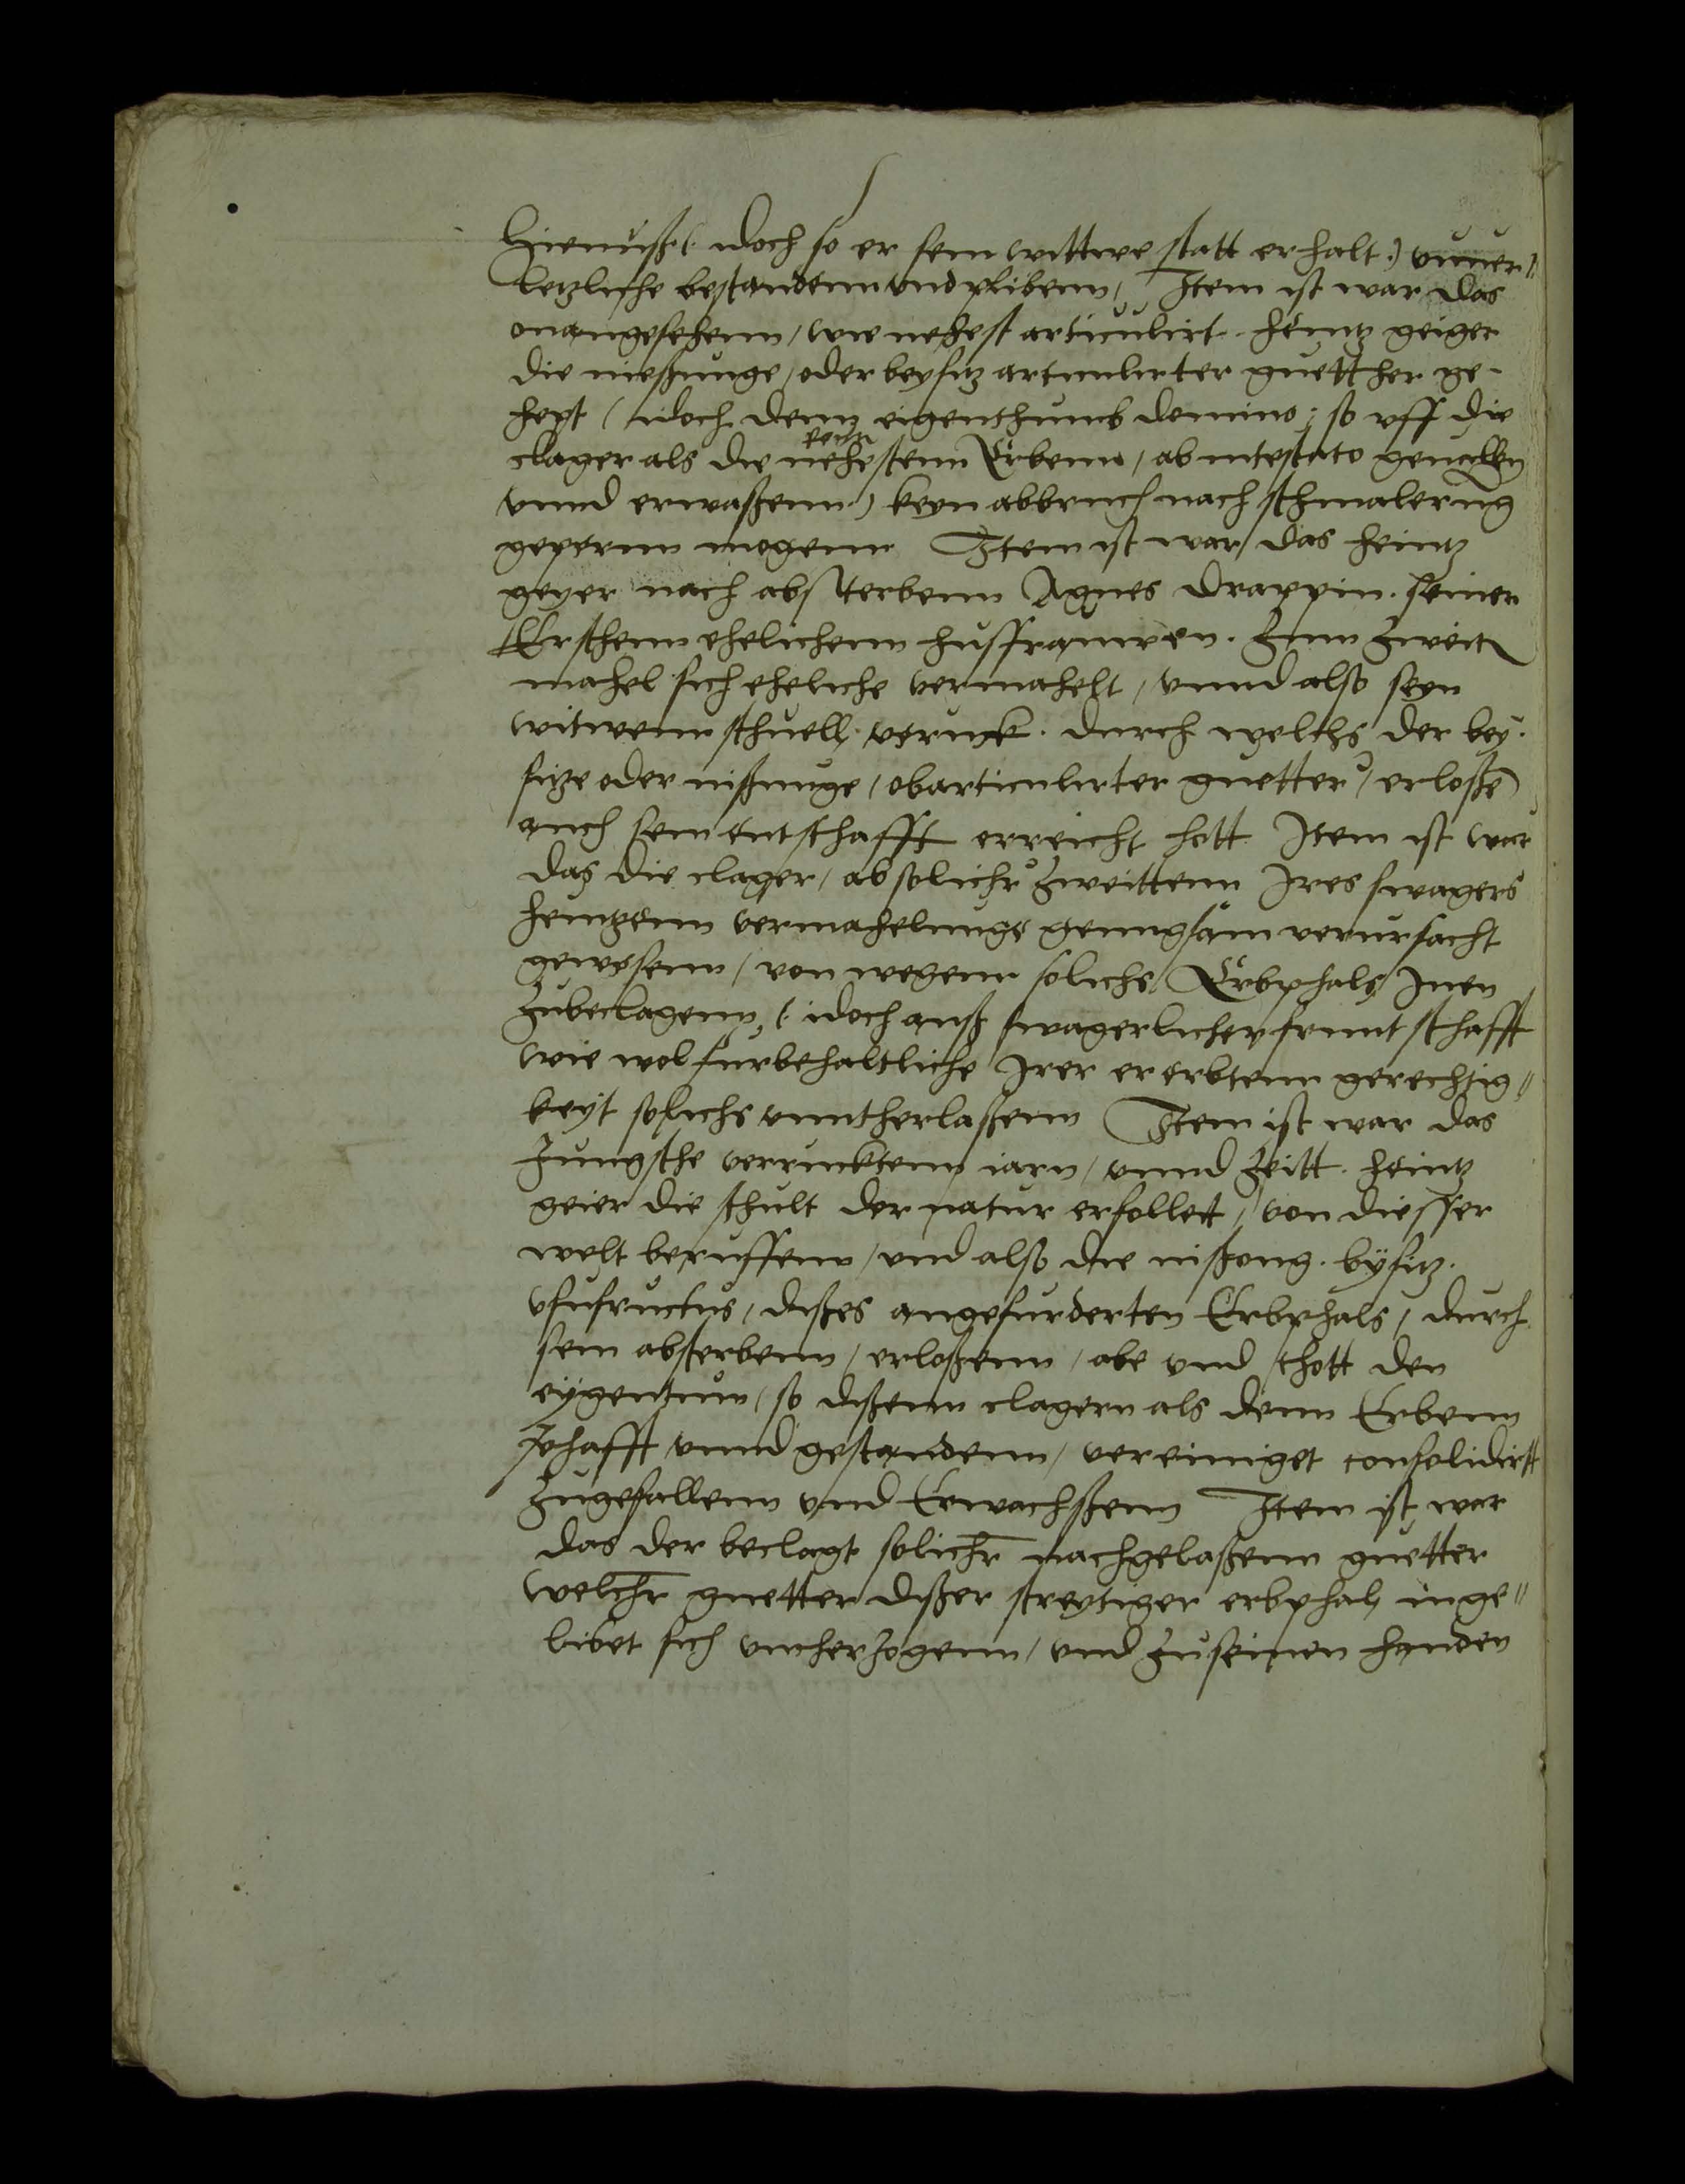 Hieruß (: idoch so er sein wittwe statt erhalt :) vnuer„
letzliche bestandenn vnd plibenn / Item ist war das
onangesehenn / wie nehest articulirt heintz geiger
die nießunge / oder beysitz articulirter guetther ge-
hept / idoch denn eigenthumb domino : so vff die
clager als die nehestenn Erbenn / ab intestato geuallen
vnnd erwaßenn ) keyn abbruch nach schmalerung
gepernn mogenn Item ist war / das heintz
geyer nach absterbenn Agnes Drappin seiner
Ersthenn ehelichenn hussfrauwen. Zum Zweit
mahel sich eheliche vermahelt / vnnd also seyn
witwenn sthuell veruckt. durch welchs der bey-
sitze oder nißunge / obarticulirter guetter / erloße
auch sein entschafft erreicht hott Item ist war
das die clager / ab solicher Zweittenn Ires swagers
heintzenn vermahelunge genugsam verursacht
gewesenn / von wegenn solichs Erbphals Inen
Zubeclagenn (: idoch auß swagerlicher fruntschafft
wie wol furbehaltliche Irer ererbtenn gerechtig„
keyt solichs vnntherlaßenn Item ist war das
Jungsthe verrucktenn iarn / vnnd Zeitt. heintz
geier die schult der natur erfollett / von diesser
welt beruffenn / vnd also die nißong. bysitz.
vsufructus / dißes angefurderten Erbphals / durch
sein absterbenn / erloßenn / abe vnd thott den
eygentum / so dißenn clagern als denn Erbenn
Zehafft vnnd gestandenn / vereiniget consolidirtt
Zugefallenn vnd Erwachßenn Item ist war
das der beclagt solicher nachgelaßenn guetter
welcher guetter dißer streytiger erbphal inge„
libet sich vntherzogenn / vnd Zu seinen handen